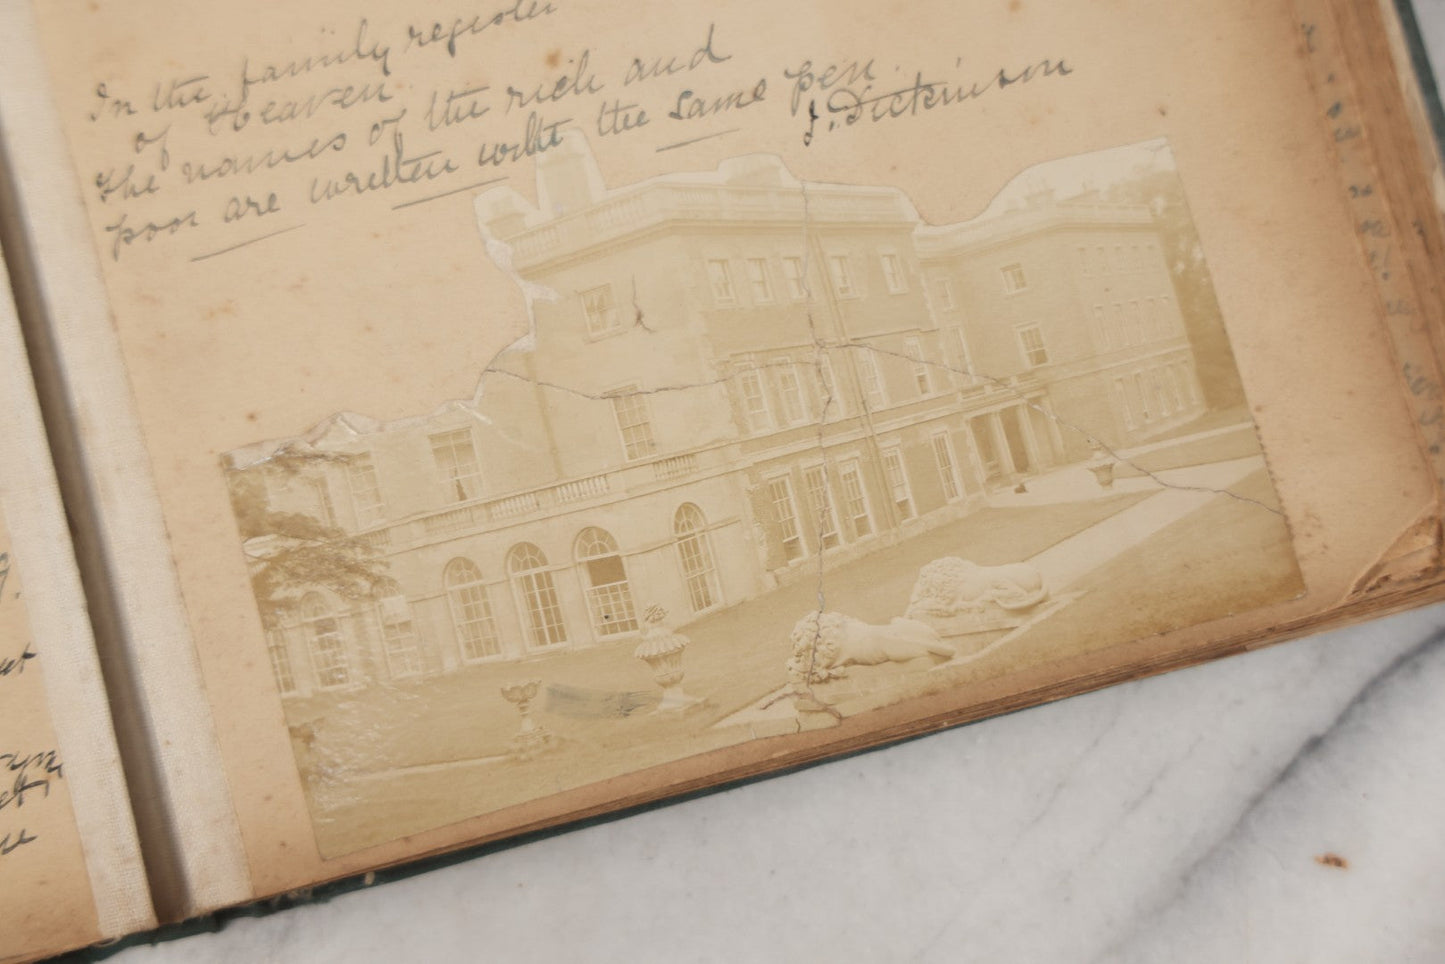 In the family register
of Heaven.
The names of the rich and
poor are written with the same pen.
J. Dickinson